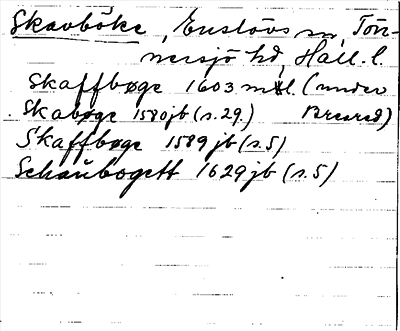 Skavböke, Enslövs sn, Tön-
nersjö hd, Hall. l.
Skaffbøge 1603 mtl (under
Skabøge 1580 jb (s. 29.) Breared)
Skaffbøge 1589 jb (s. 5)
Schaŭbogett 1629 jb (s. 5)